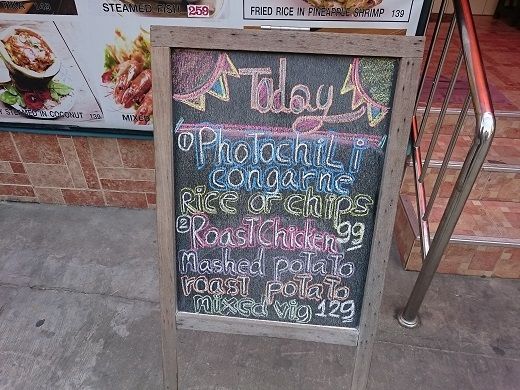 STEAMED FISH 259
FRIED RICE IN PINEAPPLE SHRIMP 139
STEAMED IN COCONUT 139
MIXED
Today
① PHoTochiLi
congarne
RicE or chips
99
② RoastChicken
Mashed potato
roast potato
mixed vig 129